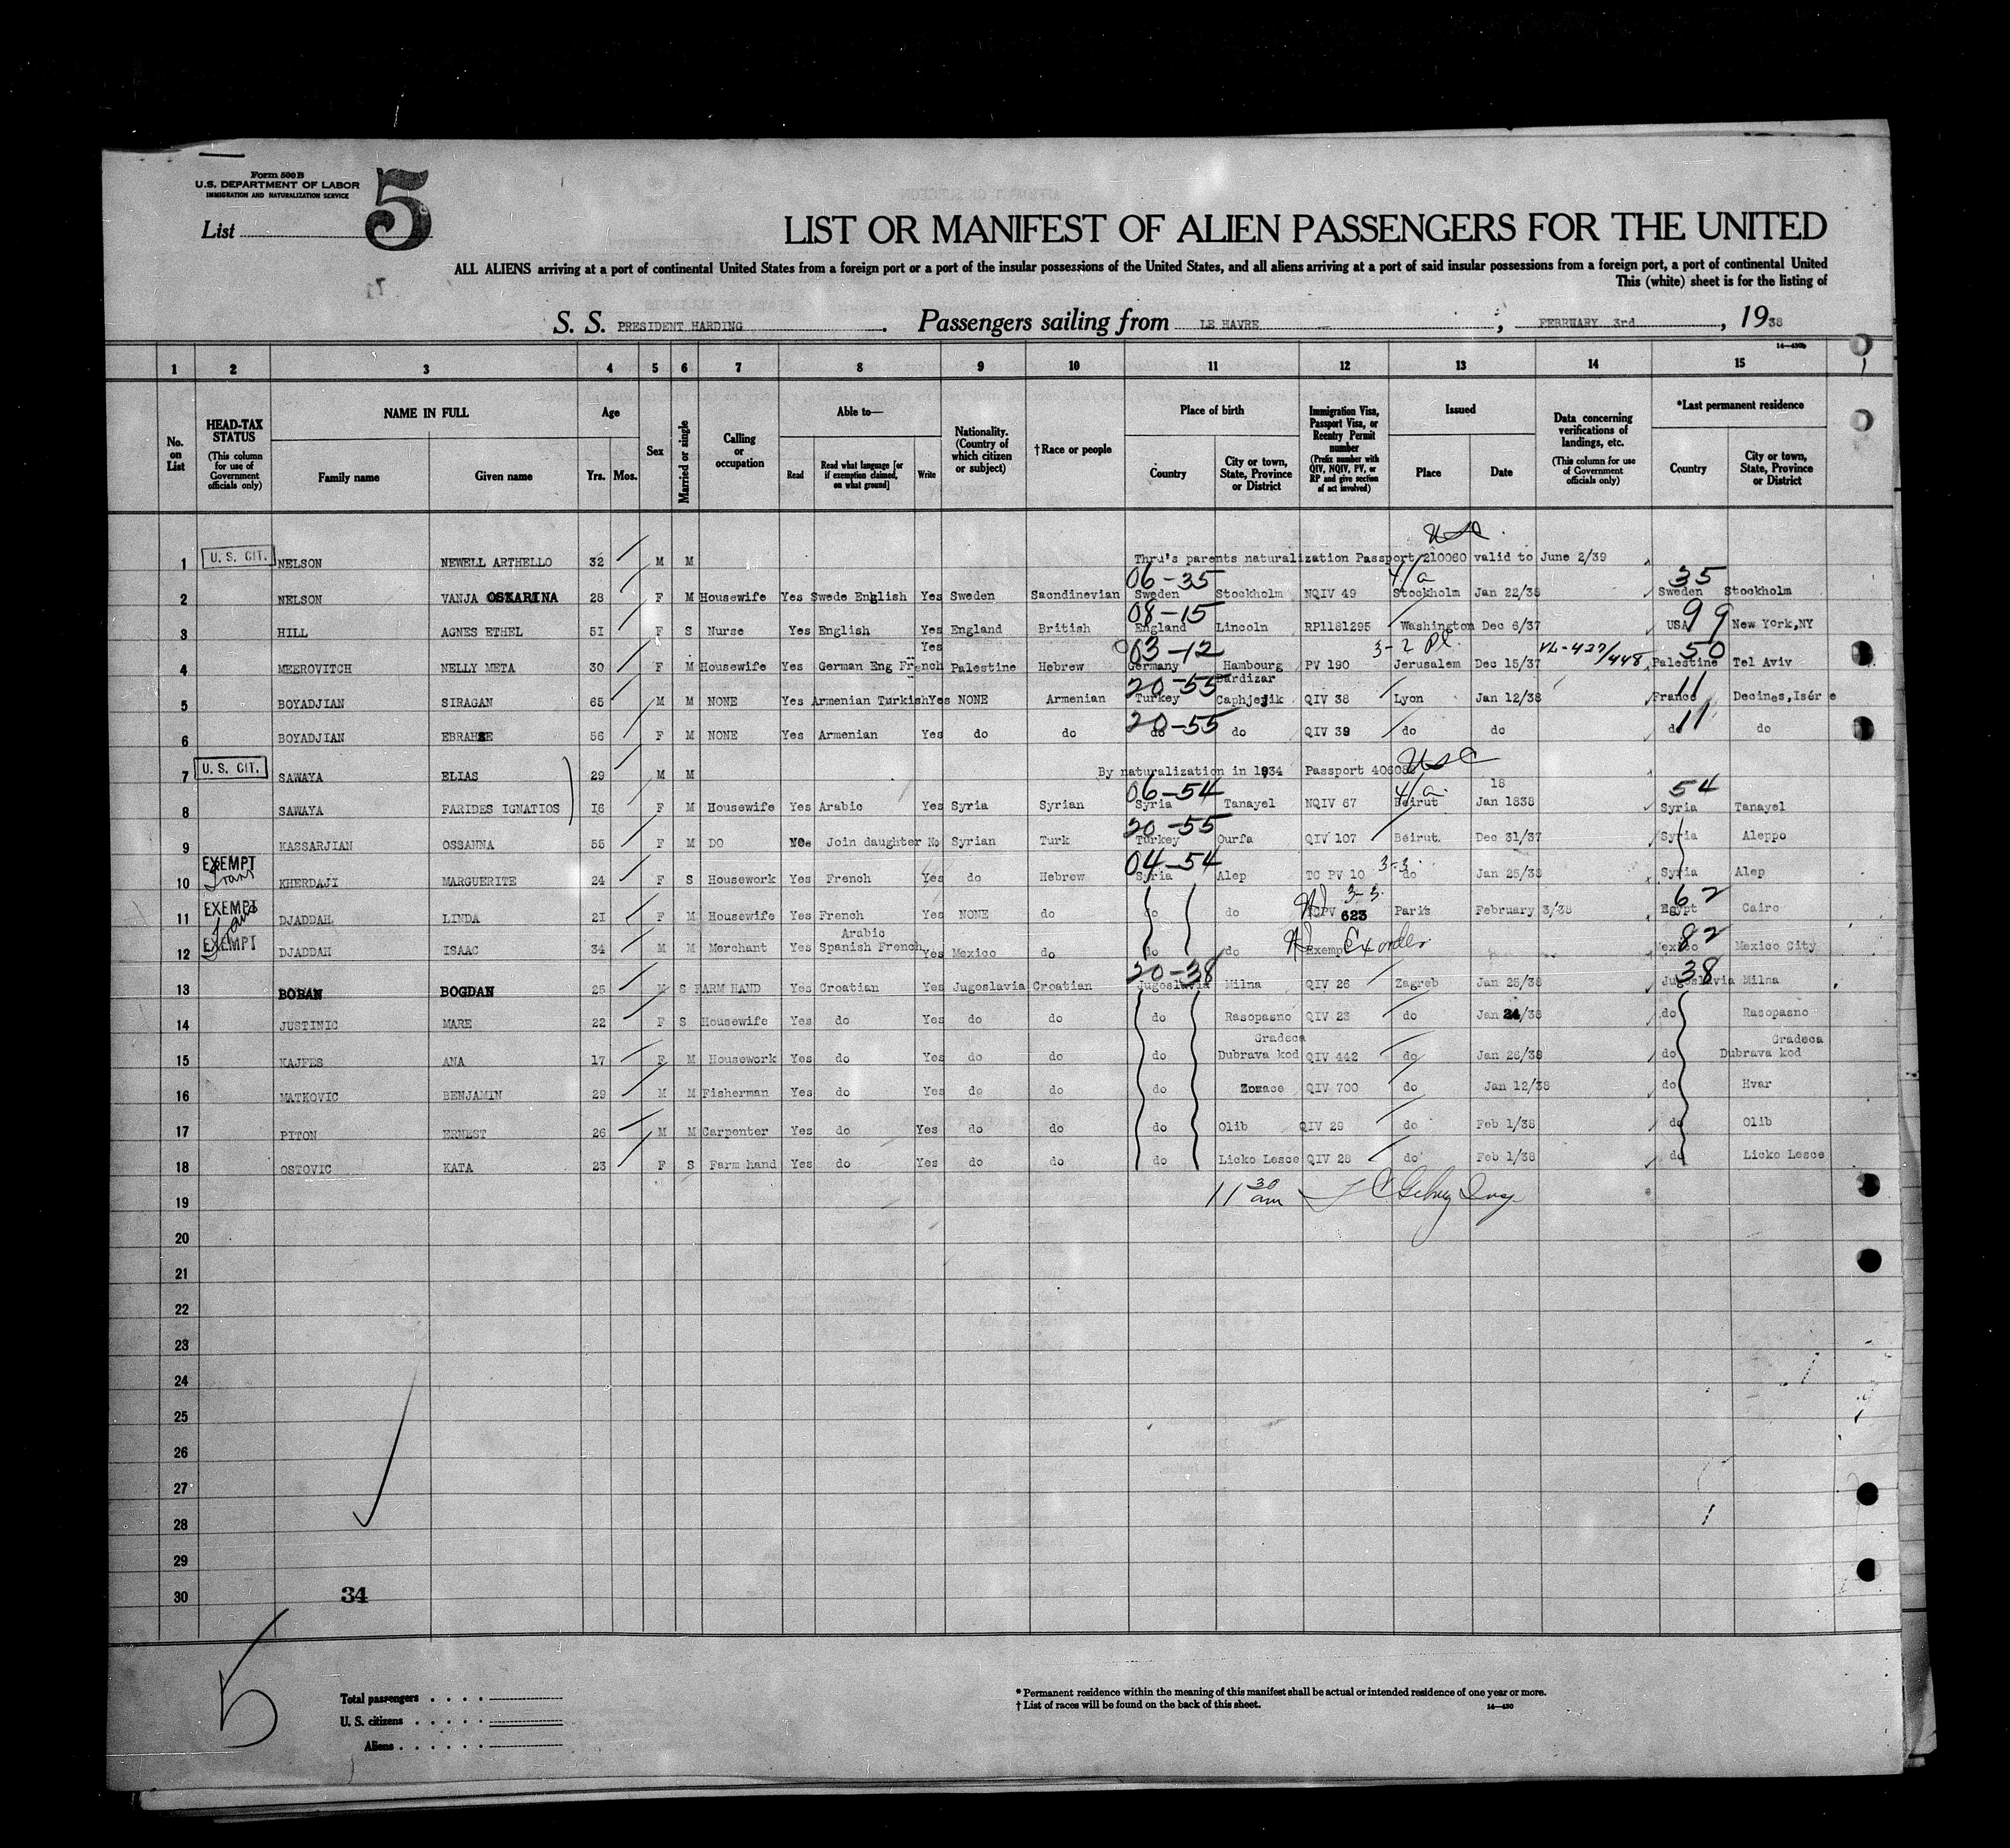 Form 500 B
U.S. DEPARTMENT OF LABOR
IMMIGRATION AND NATURALIZATION SERVICE
List 5
LIST OR MANIFEST OF ALIEN PASSENGERS FOR THE UNITED
ALL ALIENS arriving at a port of continental United States from a foreign port or a port of the insular possessions of the United States, and all aliens arriving at a port of said insular possessions from a foreign port, a port of continental United
This (white) sheet is for the listing of
S. S. PRESIDENT HARDING. Passengers sailing from LE HAVRE, FEBRUARY 3rd, 1938
14—430b
1 2 3 4 5 6 7 8 9 10 11 12 13 14 15
No. on List
HEAD-TAX STATUS (This column for use of Government officials only)
NAME IN FULL Family name Given name
Age Yrs. Mos.
Sex
Married or single
Calling or occupation
Able to— Read Read what language [or if exemption claimed, on what ground] Write
Nationality. (Country of which citizen or subject)
†Race or people
Place of birth Country City or town, State, Province or District
Immigration Visa, Passport Visa, or Reentry Permit number (Prefix number with QIV, NQIV, PV, or RP and give section of act involved)
Issued Place Date
Data concerning verifications of landings, etc. (This column for use of Government officials only)
*Last permanent residence Country City or town, State, Province or District
USC
1 U. S. CIT. NELSON NEWELL ARTHELLO 32 M M Thru's parents naturalization Passport 210060 valid to June 2/39
06-35 4/a 35
2 NELSON VANJA OSKARINA 28 F M Housewife Yes Swede English Yes Sweden Sacndinevian Sweden Stockholm NQIV 49 Stockholm Jan 22/38 Sweden Stockholm
08-15 99
3 HILL AGNES ETHEL 51 F S Nurse Yes English Yes England British England Lincoln RP1181295 Washington Dec 6/37 USA New York,NY
Yes 03-12 3-2 Pl. VL-427/448 50
4 MEEROVITCH NELLY META 30 F M Housewife Yes German Eng French Palestine Hebrew Germany Hambourg PV 190 Jerusalem Dec 15/37 Palestine Tel Aviv
20-55 Bardizar 11
5 BOYADJIAN SIRAGAN 65 M M NONE Yes Armenian Turkish Yes NONE Armenian Turkey Caphjejik QIV 38 Lyon Jan 12/38 France Decines,Isére
20-55 11
6 BOYADJIAN 56 F M NONE Yes Armenian Yes do do do do QIV 39 do do do do
7 U. S. CIT. SAWAYA ELIAS 29 M M By naturalization in 1934 Passport USC
06-54 4/a 18 54
8 SAWAYA FARIDES IGNATIOS 16 F M Housewife Yes Arabic Yes Syria Syrian Syria Tanayel NQIV 67 Beirut Jan 1838 Syria Tanayel
20-55
9 KASSARJIAN OSSANNA 55 F M DO Join daughter No Syrian Turk Turkey Ourfa QIV 107 Beirut Dec 31/37 Syria Aleppo
EXEMPT 04-54 3-3
10 Trans KHERDAJI MARGUERITE 24 F S Housework Yes French Yes do Hebrew Syria Alep TC PV 10 do Jan 25/38 Syria Alep
EXEMPT 3-3 62
11 Trans DJADDAH LINDA 21 F M Housewife Yes French Yes NONE do do do PV 623 Paris February 3/38 Egypt Cairo
EXEMPT Arabic Ex order 82
12 DJADDAH ISAAC 34 M M Merchant Yes Spanish French Yes Mexico do do do Exemp Mexico Mexico City
20-38 38
13 BOBAN BOGDAN 25 M S FARM HAND Yes Croatian Yes Jugoslavia Croatian Jugoslavia Milna QIV 26 Zagreb Jan 25/38 Jugoslavia Milna
14 JUSTINIC MARE 22 F S Housewife Yes do Yes do do do Rasopasno QIV 23 do Jan 24/38 do Rasopasno
Gradeca Gradeca
15 KAJFES ANA 17 F M Housework Yes do Yes do do do Dubrava kod QIV 442 do Jan 26/38 do Dubrava kod
16 MATKOVIC BENJAMIN 29 M M Fisherman Yes do Yes do do do QIV 700 do Jan 12/38 do Hvar
17 PITON ERNEST 26 M M Carpenter Yes do Yes do do do Olib QIV 29 do Feb 1/38 do Olib
18 OSTOVIC KATA 23 F S Farm hand Yes do Yes do do do Licko Lesce QIV 28 do Feb 1/38 do Licko Lesce
19 11 30 am
20
21
22
23
24
25
26
27
28
29
30 34
5
Total passengers
U. S. citizens
Aliens
* Permanent residence within the meaning of this manifest shall be actual or intended residence of one year or more.
† List of races will be found on the back of this sheet.
14—430